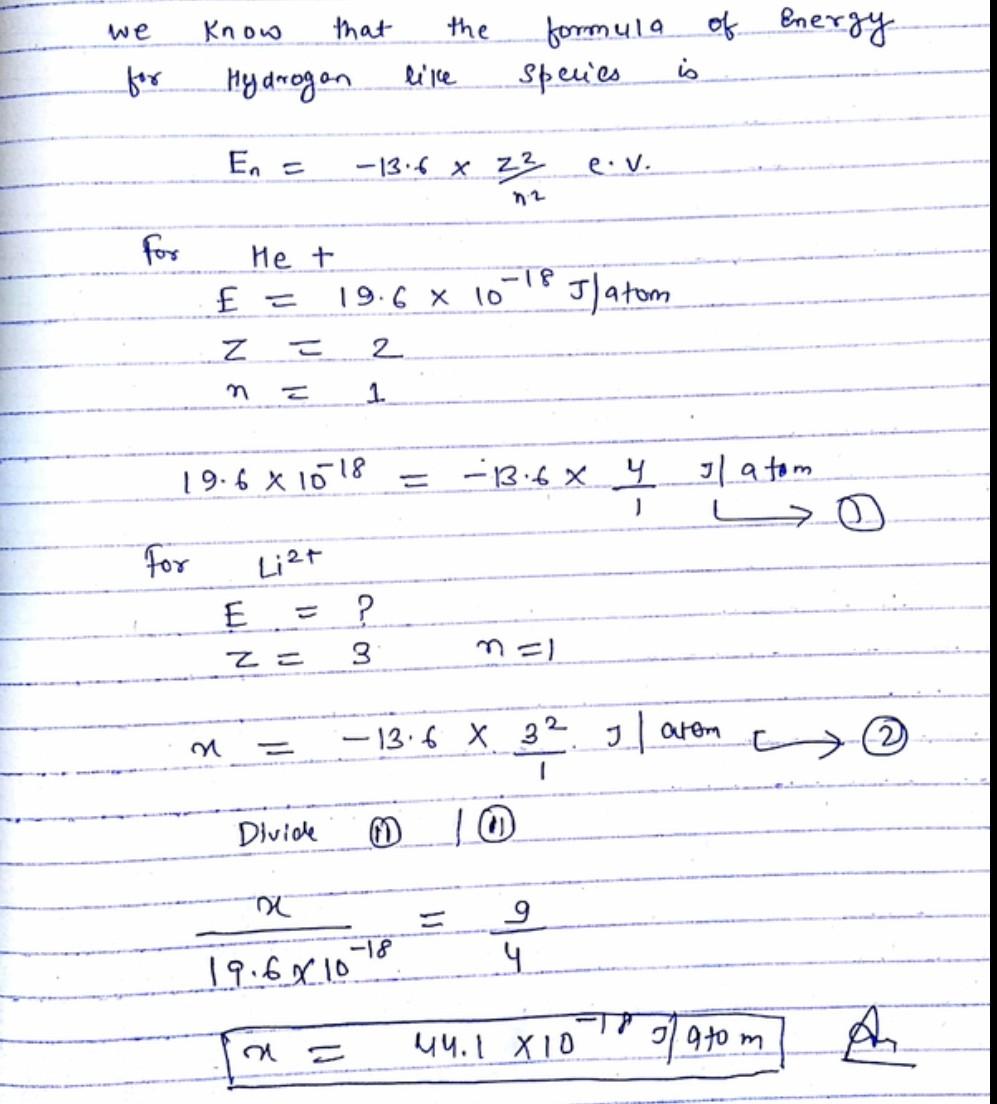 we know that the formula of Energy
for Hydrogen like species is
En = -13.6 x Z2/n2 e.v.
for He +
E = 19.6 x 10-18 J/atom
Z = 2
n = 1
19.6 x 10-18 = -13.6 x 4/1 J/atom → 1
for Li2+
E = ?
Z = 3 n = 1
x = -13.6 x 32/1 J/atom → 2
Divide (11) / (1)
x/19.6 x 10-18 = 9/4
x = 44.1 x 10-18 J/atom